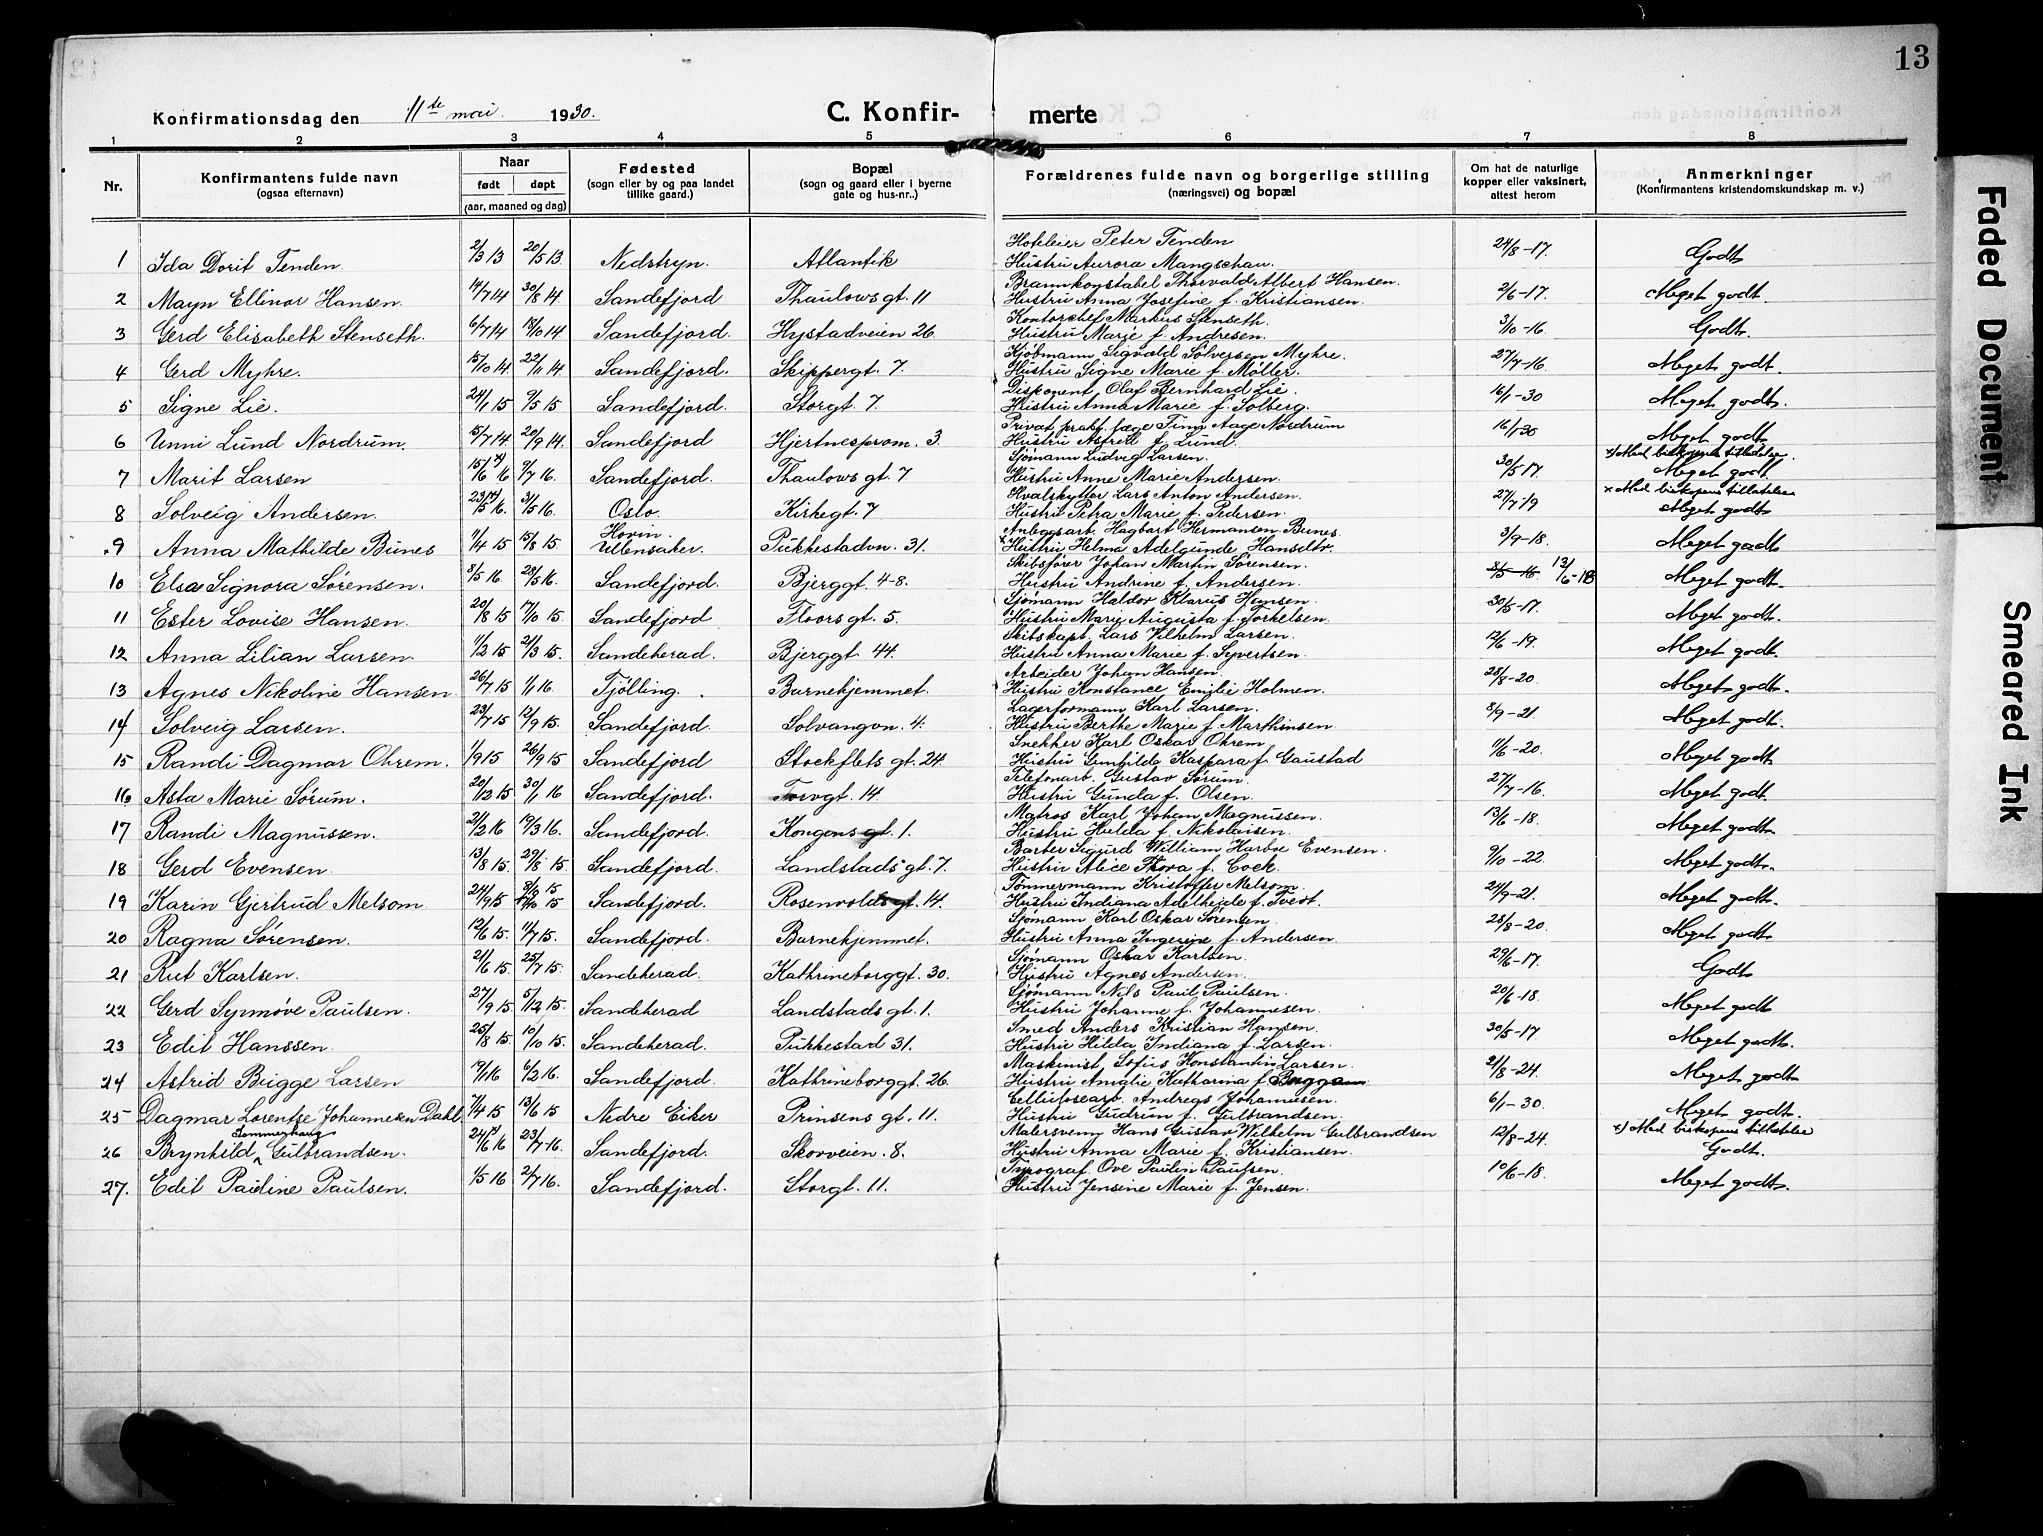 13
Konfirmationsdag den 11te mai 1930.
C. Konfirmerte
1 2 3 4 5 6 7 8
Nr.
Konfirmantens fulde navn (ogsaa efternavn)
Naar født døpt (aar, maaned og dag)
Fødested (sogn eller by og paa landet tillike gaard.)
Bopæl (sogn og gaard eller i byerne gate og hus-nr..)
Forældrenes fulde navn og borgerlige stilling (næringsvei) og bopæl
Om hat de naturlige kopper eller vaksinert, attest herom
Anmerkninger (Konfirmantens kristendomskundskap m. v.)
1 Ida Dorit Tenden. 2/3 13 20/5 13 Nedstryn. Atlantik Hoteleier Peter Tenden Hustru Aurora Mangschau. 24/8-17. Godt
2 Mayn Ellinor Hansen. 14/7 14 30/8 14 Sandefjord Thaulows gt. 11 Brannkonstabel Thorvald Albert Hansen. Hustru Anna Josefine f. Kristiansen. 2/6-17. Meget godt.
3 Gerd Elisabeth Stenseth. 6/7 14 18/10 14 Sandefjord. Hystadveien 26 Kontorchef Markus Stenseth. Hustru Marie f. Andresen. 3/10-16. Godt.
4 Gerd Myhre. 15/10 14 22/11 14 Sandefjord. Skippergt. 7. Kjøbmann Sigvald Sølversen Myhre. Hustru Signe Marie f. Møller. 27/7-16. Meget godt.
5 Signe Lie. 24/1 15 9/5 15 Sandefjord. Storgt. 7. Disponent Olaf Bernhard Lie. Hustru Anna Marie f. Solberg. 16/1-30 Meget godt.
6 Unni Lund Nordrum. 15/7 14 20/9 14. Sandefjord Hjertnesprom. 3. Privat prakt. læge Finn Aage Nordrum Hustru Astrid f. Lund. 16/1 30 Meget godt
7 Marit Larsen 15/6 x) 16 9/7 16. Sandefjord. Thaulows gt. 7 Sjømann Ludvig Larsen. Hustru Anne Marie Andersen. 30/5 17. x) Med biskopens tilladelse. Meget godt.
8 Solveig Andersen. 23/5 x) 16. 31/5 16. Oslo. Kirkegt. 7 Hvalskytter Lars Anton Andersen. Hustru Petra Marie f. Pedersen. 27/7-19 x Med biskopens tillatelse Meget godt
9 Anna Mathilde Bunes 11/4 15 15/8 15. Hovin. Ullensaker. Pukkestadvn. 31. Anleggsarb. Hagbart Hermansen Bunes. Hustru Helma Adelgunde Hansdtr. 3/9-18. Meget godt
10 Elsa Signora Sørensen. 8/5 16. 28/5 16. Sandefjord. Bjerggt. 4-8. Skibsfører Johan Martin Sørensen. Hustru Andrine f. Andersen. 8/5-16. 13/6-18 Meget godt.
11 Ester Lovise Hansen. 20/8 15 17/10 15. Sandefjord Floors gt. 5. Sjømann Haldor Klarus Hansen. Hustru Marie Augusta f. Torkelsen. 30/5-17. Meget godt.
12 Anna Lilian Larsen. 1/2 15 21/3 15. Sandeherad. Bjerggt. 44. Skibskapt. Lars Vilhelm Larsen. Hustru Anna Marie f. Syvertsen. 12/6-19. Meget godt.
13 Agnes Nikoline Hansen. 26/7 15 1/1 16. Tjølling. Barnehjemmet. Arbeider Johan Hansen. Hustru Konstance Emilie Holmen. 28/8-20. Meget godt.
14 Solveig Larsen. 23/7 15 12/9 15. Sandefjord. Solvangvn. 4. Lagerformann Karl Larsen. Hustru Berthe Marie f. Marthinsen 8/9-21. Meget godt.
15 Randi Dagmar Ohrem. 1/9 15 26/9 15 Sandefjord Stockflets gt. 24. Snekker Karl Oskar Ohrem. Hustru Gunhilda Kaspara f. Gaustad 11/6-20. Meget godt
16 Asta Marie Sørum. 20/12 15. 30/1 16 Sandefjord. Torvgt. 14. Telefonarb. Gustav Sørum. Hustru Gunda f. Olsen. 27/7-16. Meget godt.
17 Randi Magnussen. 21/2 16 19/3 16. Sandefjord. Kongens gt. 1. Matros Karl Johan Magnussen. Hustru Hulda f. Nikolaisen. 13/6-18. Meget godt.
18 Gerd Evensen. 13/8 15. 29/8 15. Sandefjord. Landstads gt. 7. Barber Sigurd William Harboe Evensen. Hustru Alice Thora f. Cock. 9/10-22. Meget godt.
19 Karin Gjertrud Melsom. 24/9 15 15 Sandefjord. Rosenvolds gt. 14. Tømmermann Kristoffer Melsom. Hustru Indiana Adelheide f. Tvedt. 21/9-21. Meget godt.
20 Ragna Sørensen. 12/6 15. 11/7 15. Sandefjord. Barnehjemmet. Sjømann Karl Oskar Sørensen Hustru Anna Ingerine f. Andersen 28/8-20 Meget godt
21 Rut Karlsen. 21/6 15. 25/7 15. Sandeherad. Kathrineborggt. 30. Sjømann Oskar Karlsen. Hustru Agnes Andersen. 29/6-17. Godt
22 Gerd Synnøve Paulsen. 27/9 15. 5/12 15. Sandeherad Landstads gt. 1. Sjømann Nils Paul Paulsen. Hustru Johanne f. Johannesen. 20/6-18. Meget godt
23 Edit Hanssen. 25/8 15. 10/10 15. Sandeherad. Pukkestad 31. Smed Anders Kristian Hansen. Hustru Hilda Indiana f. Larsen. 30/5-17. Meget godt.
24 Astrid Brigge Larsen 17/1 16 6/2 16. Sandefjord. Kathrineborggt. 26. Maskinist Sofus Konstantin Larsen. Hustru Amalie Katharina f. 21/8-24. Meget godt
25 Dagmar Lorentse Johannesen Dahl. 7/4 15 13/6 15 Nedre Eiker Prinsens gt. 11. Cellulosearb. Andreas Johannesen. Hustru Gudrun f. Gulbrandsen. 6/1-30. Meget godt.
26 Brynhild Sommerhaug Gulbrandsen. 24/6 x) 16 23/7-16. Sandefjord. Skorveien. 8. Malersvenn Hans Gustav Wilhelm Gulbrandsen Hustru Anna Marie f. Kristiansen. 12/8-24. x) Med biskopens tillatelse Godt.
27. Edit Pauline Paulsen. 1/5 16 2/7 16. Sandefjord. Storgt. 11. Typograf. Ove Paulin Paulsen. Hustru Jensine Marie f. Jensen. 10/6-18. Meget godt.
Faded Document
Smeared Ink